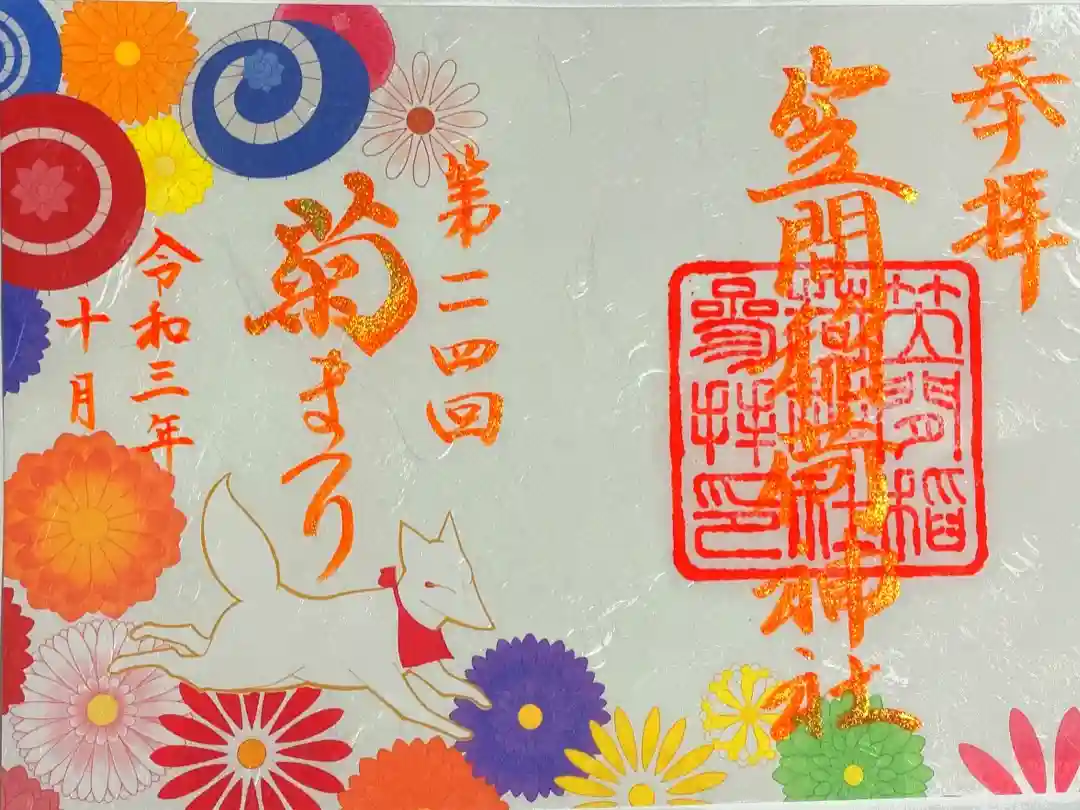 奉拝
笠間稲荷神社
笠間稲
荷神社
参拝印
第一一四回
菊まつり
令和三年
十月